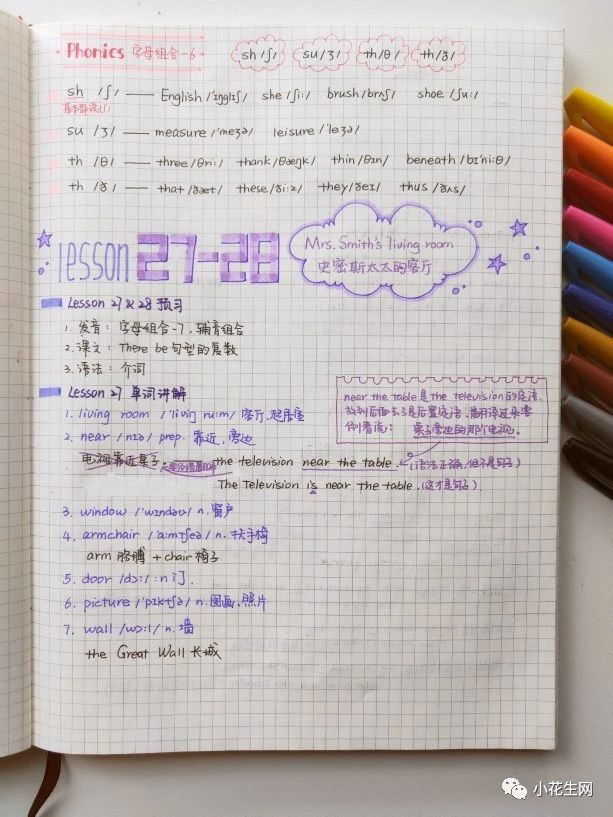 Phonics 字母组合-6 sh /ʃ/ su/ʒ/ th/θ/ th/ð/
sh /ʃ/ — English /'ɪŋglɪʃ/ she /ʃi:/ brush/brʌʃ/ shoe /ʃu:/
su /ʒ/ — measure /'meʒə/ leisure /'leʒə/
th /θ/ — three/θri:/ thank/θæŋk/ thin/θɪn/ beneath/bɪ'ni:θ/
th /ð/ — that/ðæt/ these/ði:z/ they/ðeɪ/ thus/ðʌs/
lesson 27-28
Mrs. Smith's living room
史密斯太太的客厅
Lesson 27&28 预习
1. 发音: 字母组合-7, 辅音组合
2. 课文: There be句型的复数
3. 语法: 介词
Lesson 27 单词讲解
near the table是the television的定语,
放到后面
是后置定语,
倒着说: 桌子旁边的那个电视。
1. living room /'livɪŋ ru:m/ 客厅,起居室
2. near /nɪə/ prep. 靠近,旁边
电视靠近桌子. the television near the table. (语法正确,但不是句子)
The television is near the table. (这才是句子)
3. window /'wɪndəʊ/ n. 窗户
4. armchair /'a:mtʃeə/ n. 扶手椅
arm 胳膊 + chair 椅子
5. door /dɔ:/ :n 门.
6. picture /'pɪktʃə/ n. 图画、照片
7. wall /wɔ:l/ n. 墙
the Great Wall 长城
小花生网